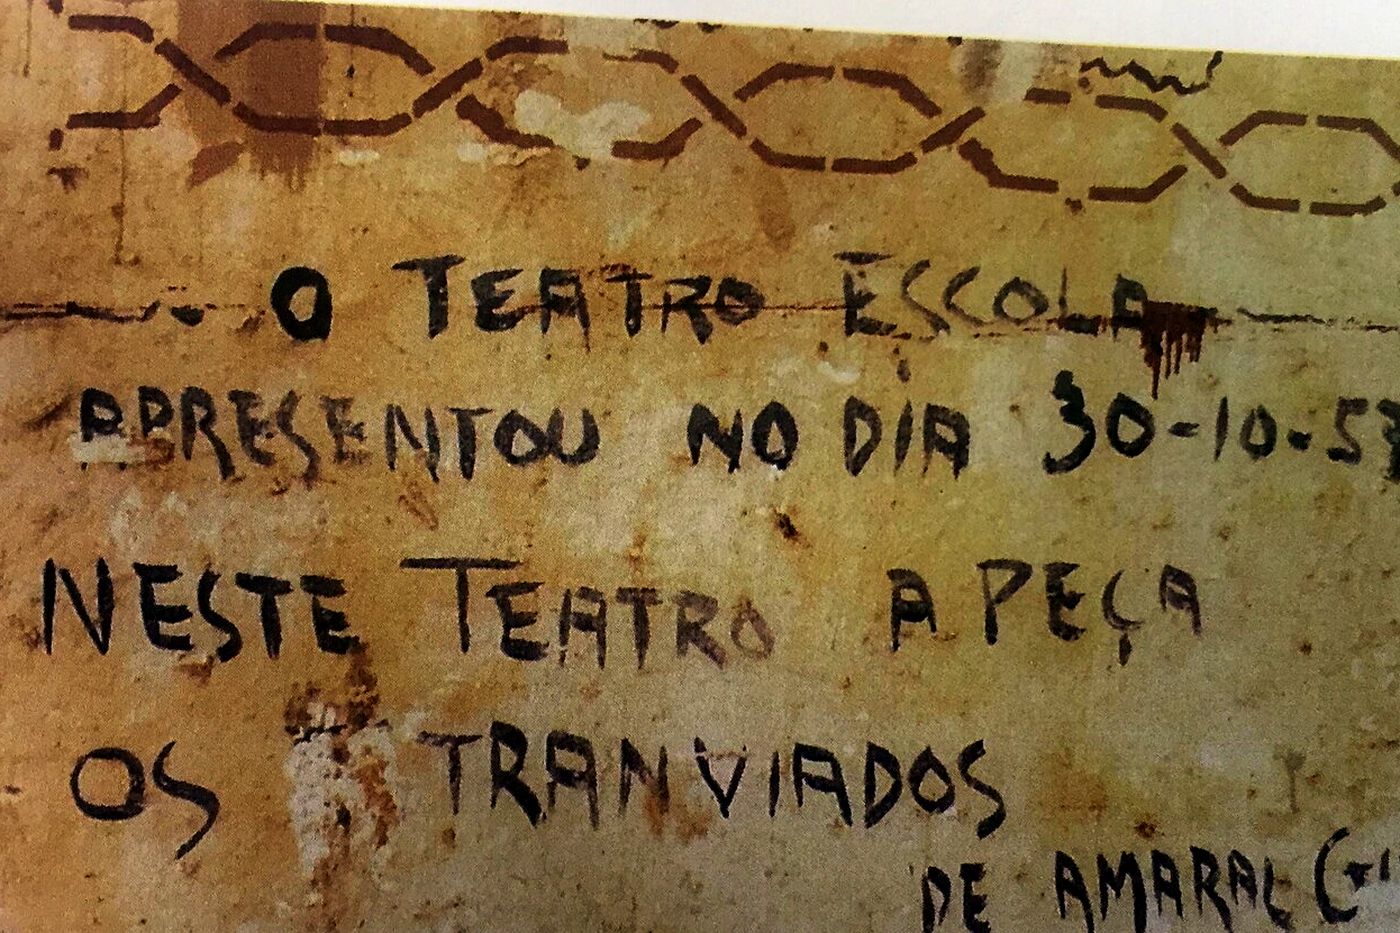 O TEATRO ESCOLA
APRESENTOU NO DIA 30-10-57
NESTE TEATRO A PEÇA
OS TRANVIADOS
DE AMARAL